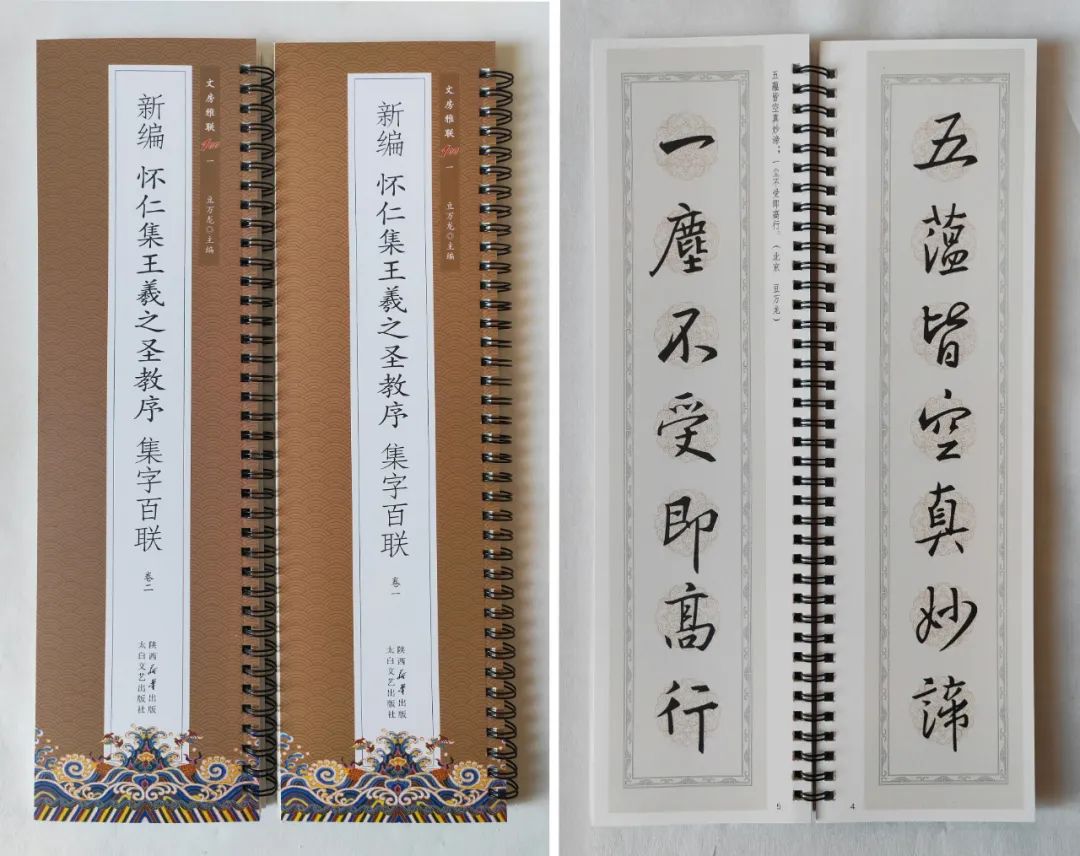 文房雅联 一 豆万龙◎主编
新编 怀仁集王羲之圣教序 集字百联 卷二
陕西新华出版
太白文艺出版社
文房雅联 一 豆万龙◎主编
新编 怀仁集王羲之圣教序 集字百联 卷一
陕西新华出版
太白文艺出版社
五薀皆空真妙諦
4
五蘊皆空真妙谛；一尘不受即高行。（北京 豆万龙）
一塵不受即高行
5